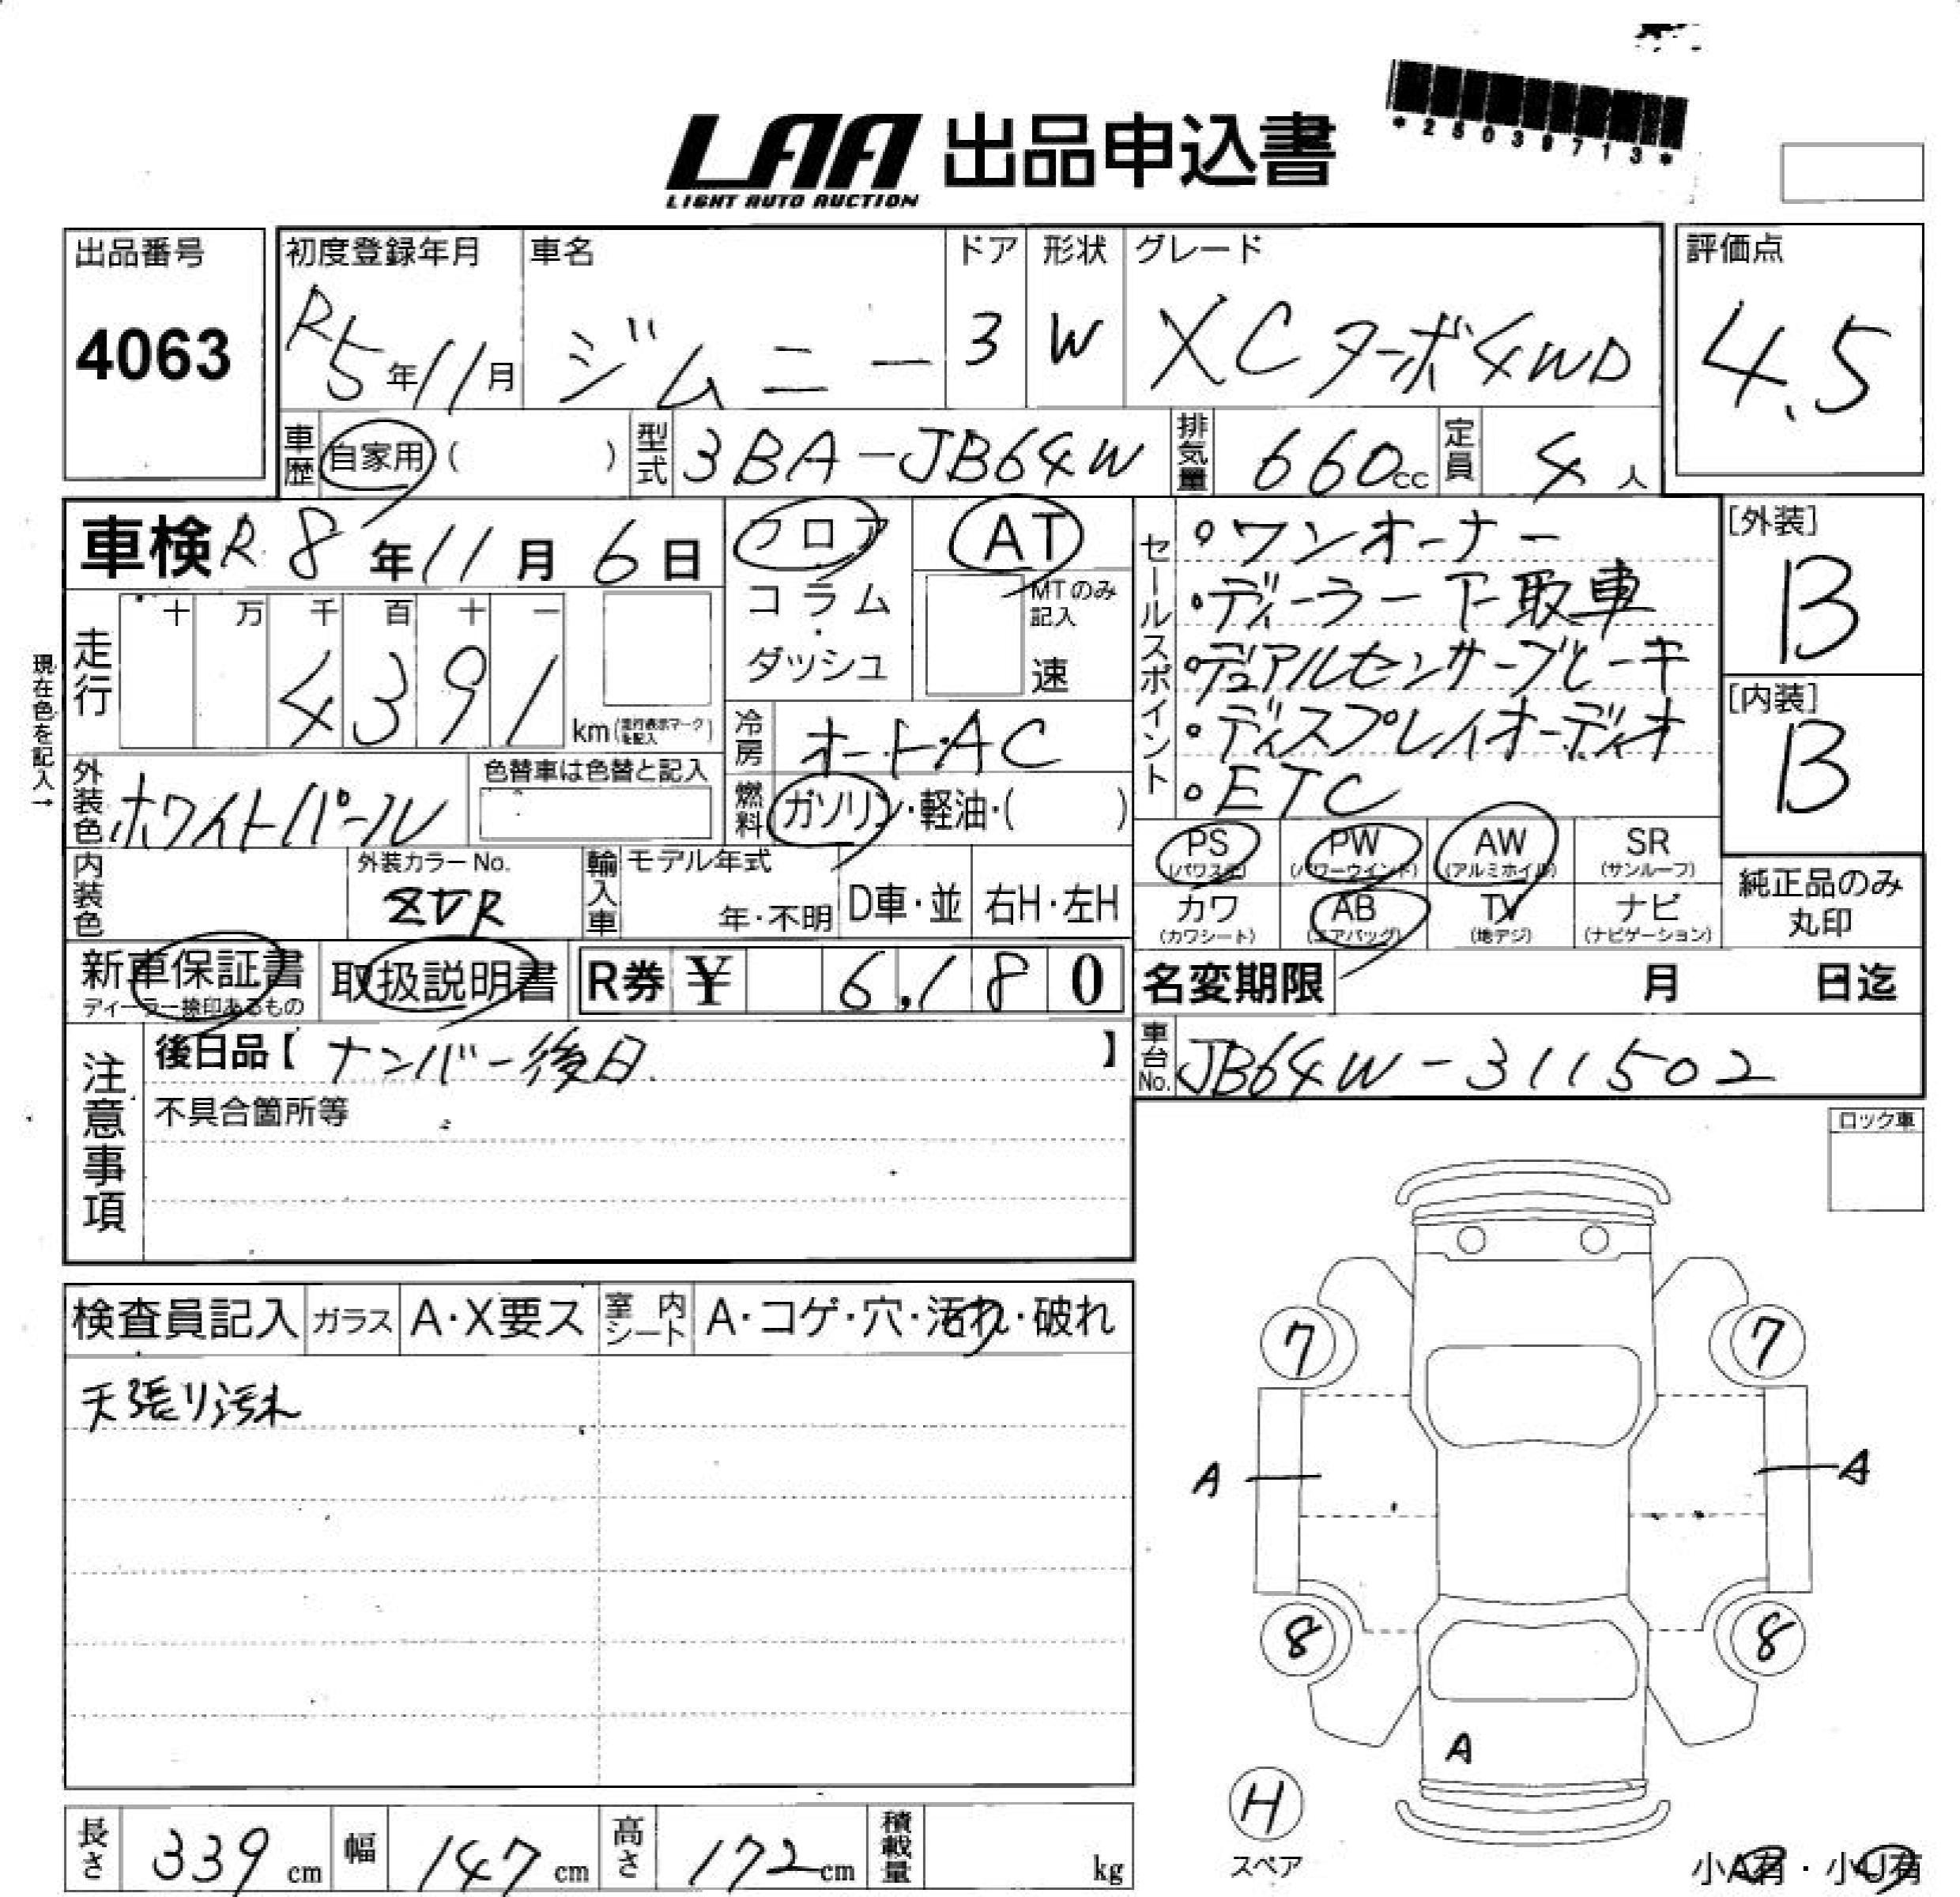 LAA 出品申込書
LIGHT AUTO AUCTION
*25039713*
出品番号
4063
初度登録年月 車名 ドア 形状 グレード
R5年11月 ジムニー 3 W XCターボ4WD
評価点
4.5
車歴 自家用 ( ) 型式 3BA-JB64W 排気量 660cc 定員 4人
車検 R8年11月6日
フロア
コラム・ダッシュ
AT
MTのみ記入
速
セールスポイント
・ワンオーナー
・ディーラー下取車
・デュアルセンサーブレーキ
・ディスプレイオーディオ
・ETC
[外装]
B
[内装]
B
現在色を記入→
走行 十 万 千 百 十 一
4391 km (走行表示マークを記入)
冷房 オートAC
外装色 ホワイトパール 色替車は色替と記入
燃料 ガソリン・軽油・( )
PS (パワステ) PW (パワーウインド) AW (アルミホイル) SR (サンルーフ)
カワ (カワシート) AB (エアバッグ) TV (地デジ) ナビ (ナビゲーション)
純正品のみ丸印
内装色 外装カラーNo. ZVR 輸入車 モデル年式 年・不明 D車・並 右H・左H
新車保証書 ディーラー捺印あるもの 取扱説明書 R券 ¥ 6,180
名変期限 月 日迄
車台No. JB64W-311502
注意事項
後日品【ナンバー後日】
不具合箇所等
ロック車
検査員記入 ガラス A・X要ス 室内シート A・コゲ・穴・汚れ・破れ
天張り汚れ
7 7
A A
8 8
A
H
スペア
小A有・小U有
長さ 339cm 幅 147cm 高さ 172cm 積載量 kg